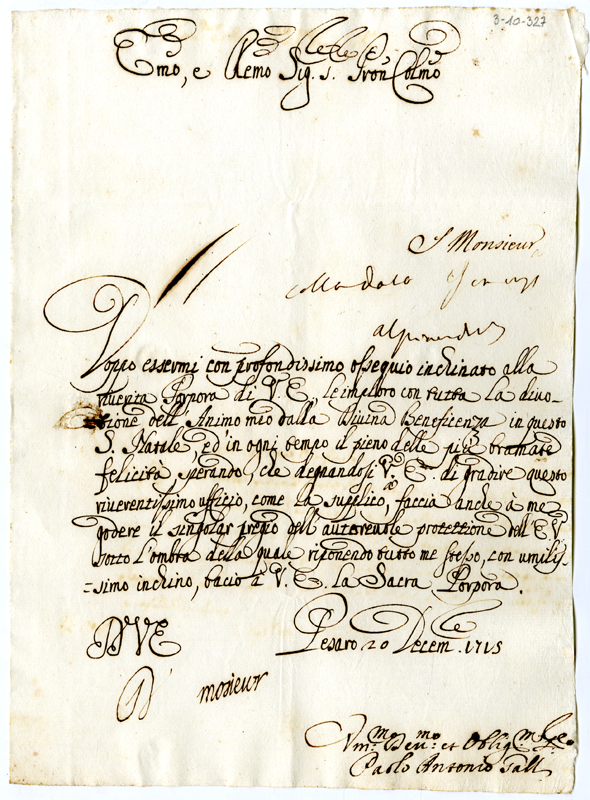 3-10-327
Emo, e Rემo Sig. s. Pron Colmo
S Monsieur
Doppo essermi con profondissimo ossequio inchinato alla
riverita Porpora di V. E., le imploro con tutta la divo-
tione dell'Animo mio dalla Divina Beneficenza in questo
S. Natale, ed in ogni tempo il pieno delle più bramate
felicità sperando, che degnandosi V. E. di gradire questo
riverentissimo ufficio, come la supplico, faccia anche à me
godere il singolar pregio dell'autorevole protettione dell'E. V.
sotto l'ombra della quale riponendo tutto me stesso, con umilis-
-simo inchino, bacio à V. E. la Sacra Porpora.
D V E
Pesaro 20 Decem.le 1715
D' mosieur
Vm.mo Dev.mo et Oblig.mo
Paolo Antonio